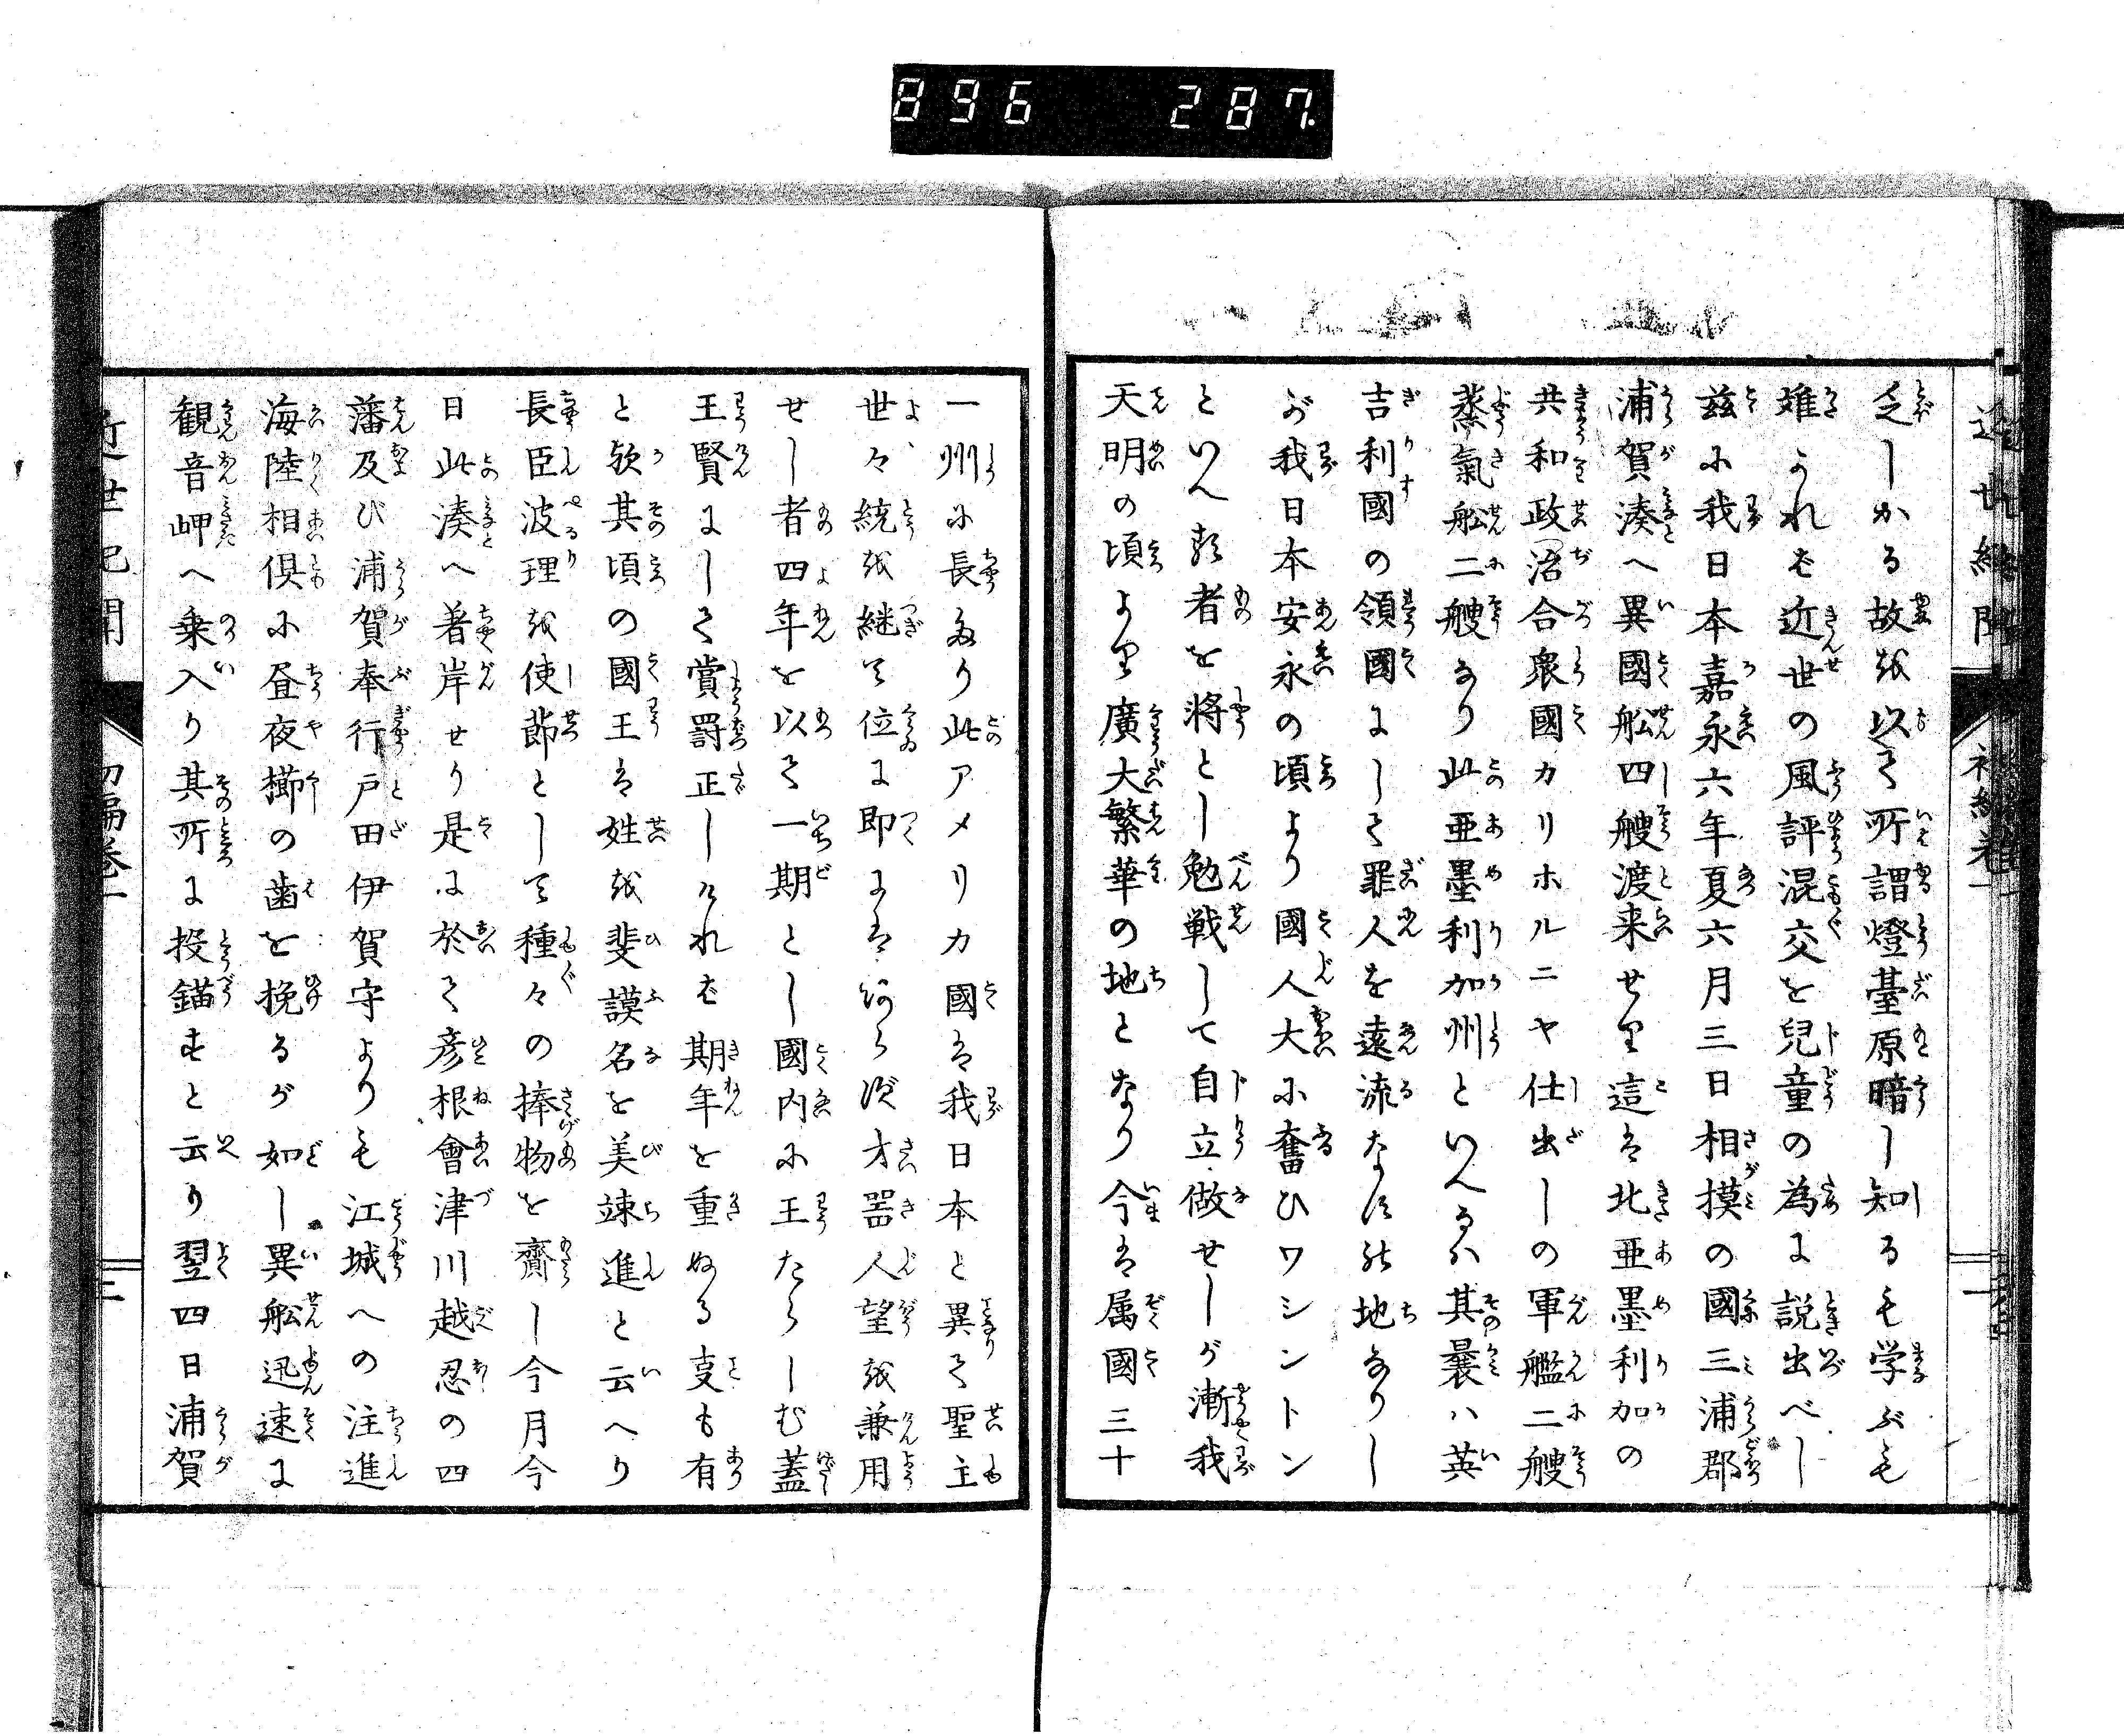 896 287.
乏しかる故を以て所謂燈臺原暗し知るも学ぶも
難かれど近世の風評混交を兒童の為に説出べし
茲に我日本嘉永六年夏六月三日相摸の國三浦郡
浦賀湊へ異國舩四艘渡来せり這は北亜墨利加の
共和政治合衆國カリホルニヤ仕出しの軍艦二艘
蒸氣舩二艘なり此亜墨利加州といへるハ其曩ハ英
吉利國の領國にして罪人を遠流なす地なりし
が我日本安永の頃より國人大に奮ひワシントン
といへる者を將とし勉戦して自立做せしが漸我
天明の頃より廣大繁華の地となり今は属國三十
近世紀聞 初編巻一 二
一州に長たり此アメリカ國は我日本と異て聖主
世々統を継て位に即には何らず才器人望を兼用
せし者四年を以て一期とし國内に王たらしむ蓋
王賢にして賞罸正しければ期年を重ぬる事も有
と欤其頃の國王は姓を斐謨名を美竦進と云へり
長臣波理を使節として種々の捧物を齎し今月今
日此湊へ着岸せり是に於て彦根會津川越忍の四
藩及び浦賀奉行戸田伊賀守よりも江城への注進
海陸相倶に昼夜櫛の歯を挽るが如し異舩迅速に
観音岬へ乗入り其所に投錨すと云り翌四日浦賀
近世紀聞 初編巻一 二